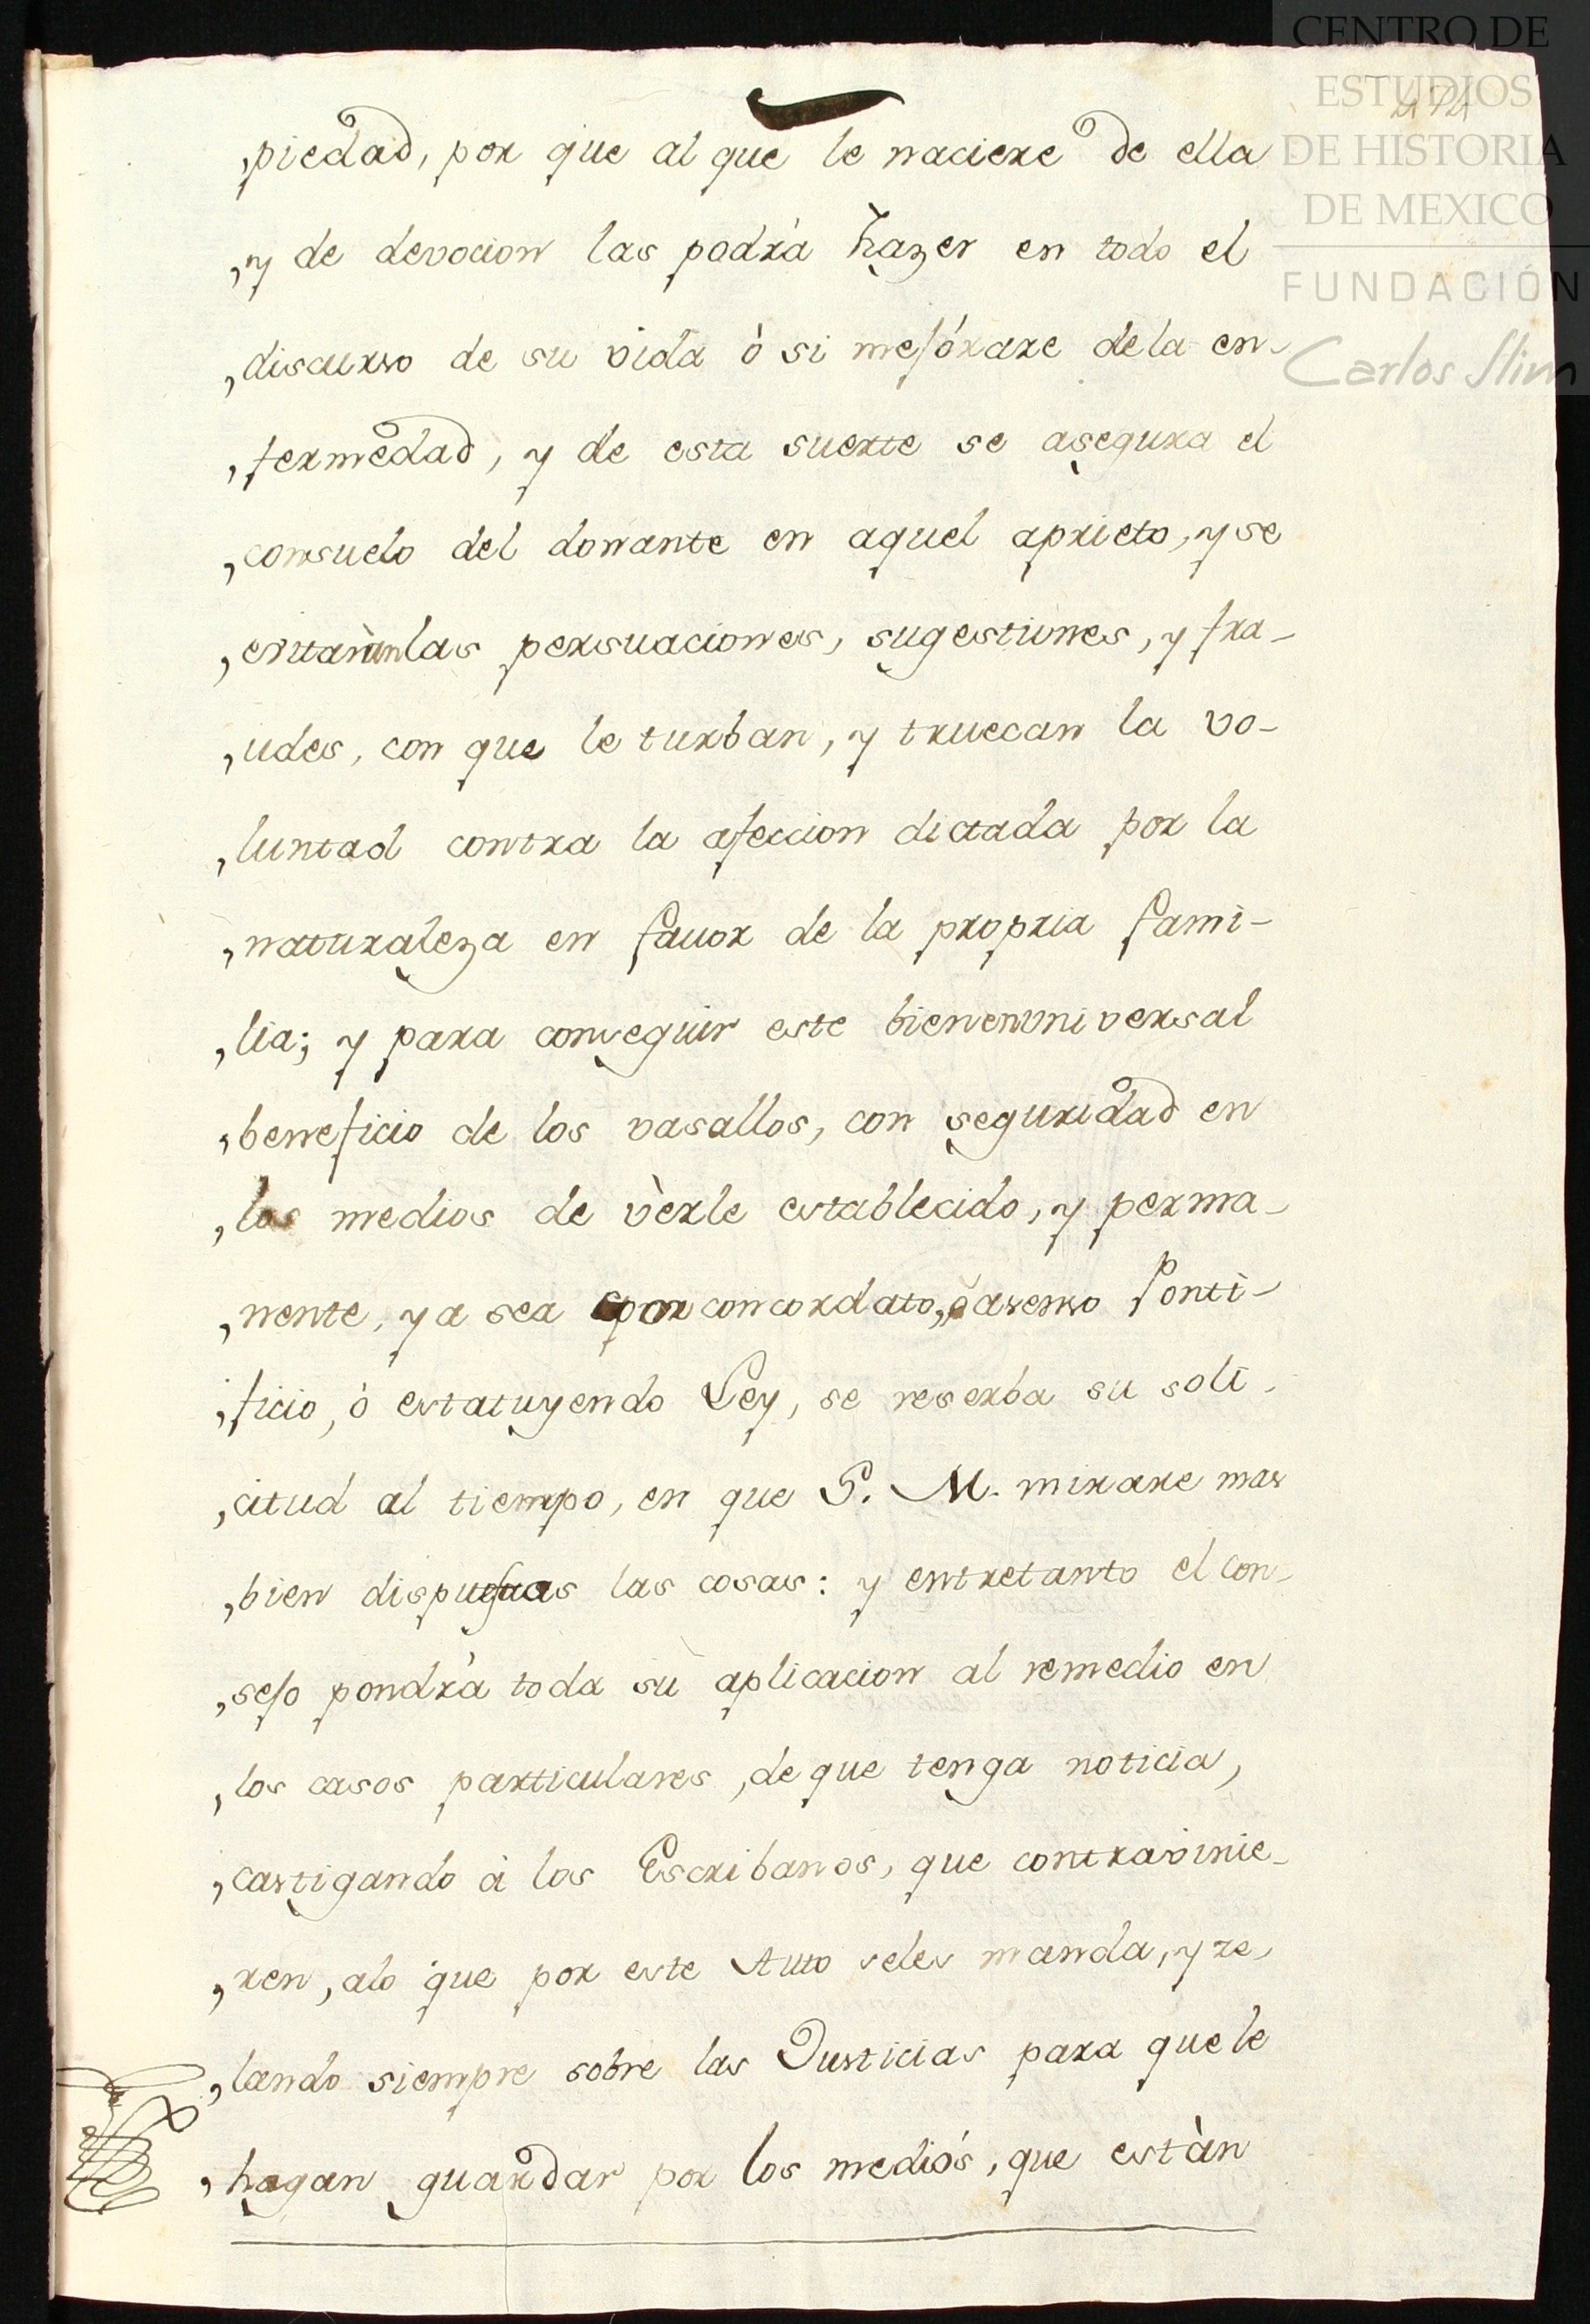 CENTRO DE
ESTUDIOS
DE HISTORIA
DE MEXICO
FUNDACIÓN
Carlos Slim
,piedad, por que al que le naciere de ella
,y de devocion las podrà hazer en todo el
,discurso de su vida ò si mejórare dela en-
,fermedad, y de esta suerte se asegura el
,consuelo del donante en aquel aprieto, y se
,evitaràn las persuaciones, sugestiones, y fra-
,udes, con que le turban, y truecan la vo-
,luntad contra la afeccion dictada por la
,naturaleza en fauor de la propria fami-
,lia; y para conseguir este bien en vniversal
,beneficio de los vasallos, con seguridad en
,los medios de vèrle establecido, y perma-
,nente, ya sea por concordato, ò asenso Ponti-
,ficio, ò estatuyendo Ley, se reserba su soli-
,citud al tiempo, en que S. M. mirare mas
,bien dispuestas las cosas: y entretanto el Con-
,sejo pondrà toda su aplicacion al remedio en
,los casos particulares, de que tenga noticia,
,castigando à los Escribanos, que contravinie-
,ren, alo que por este Auto seles manda, y ze-
,lando siempre sobre las Justicias para quele
,hagan guardar por los mediós, que estàn